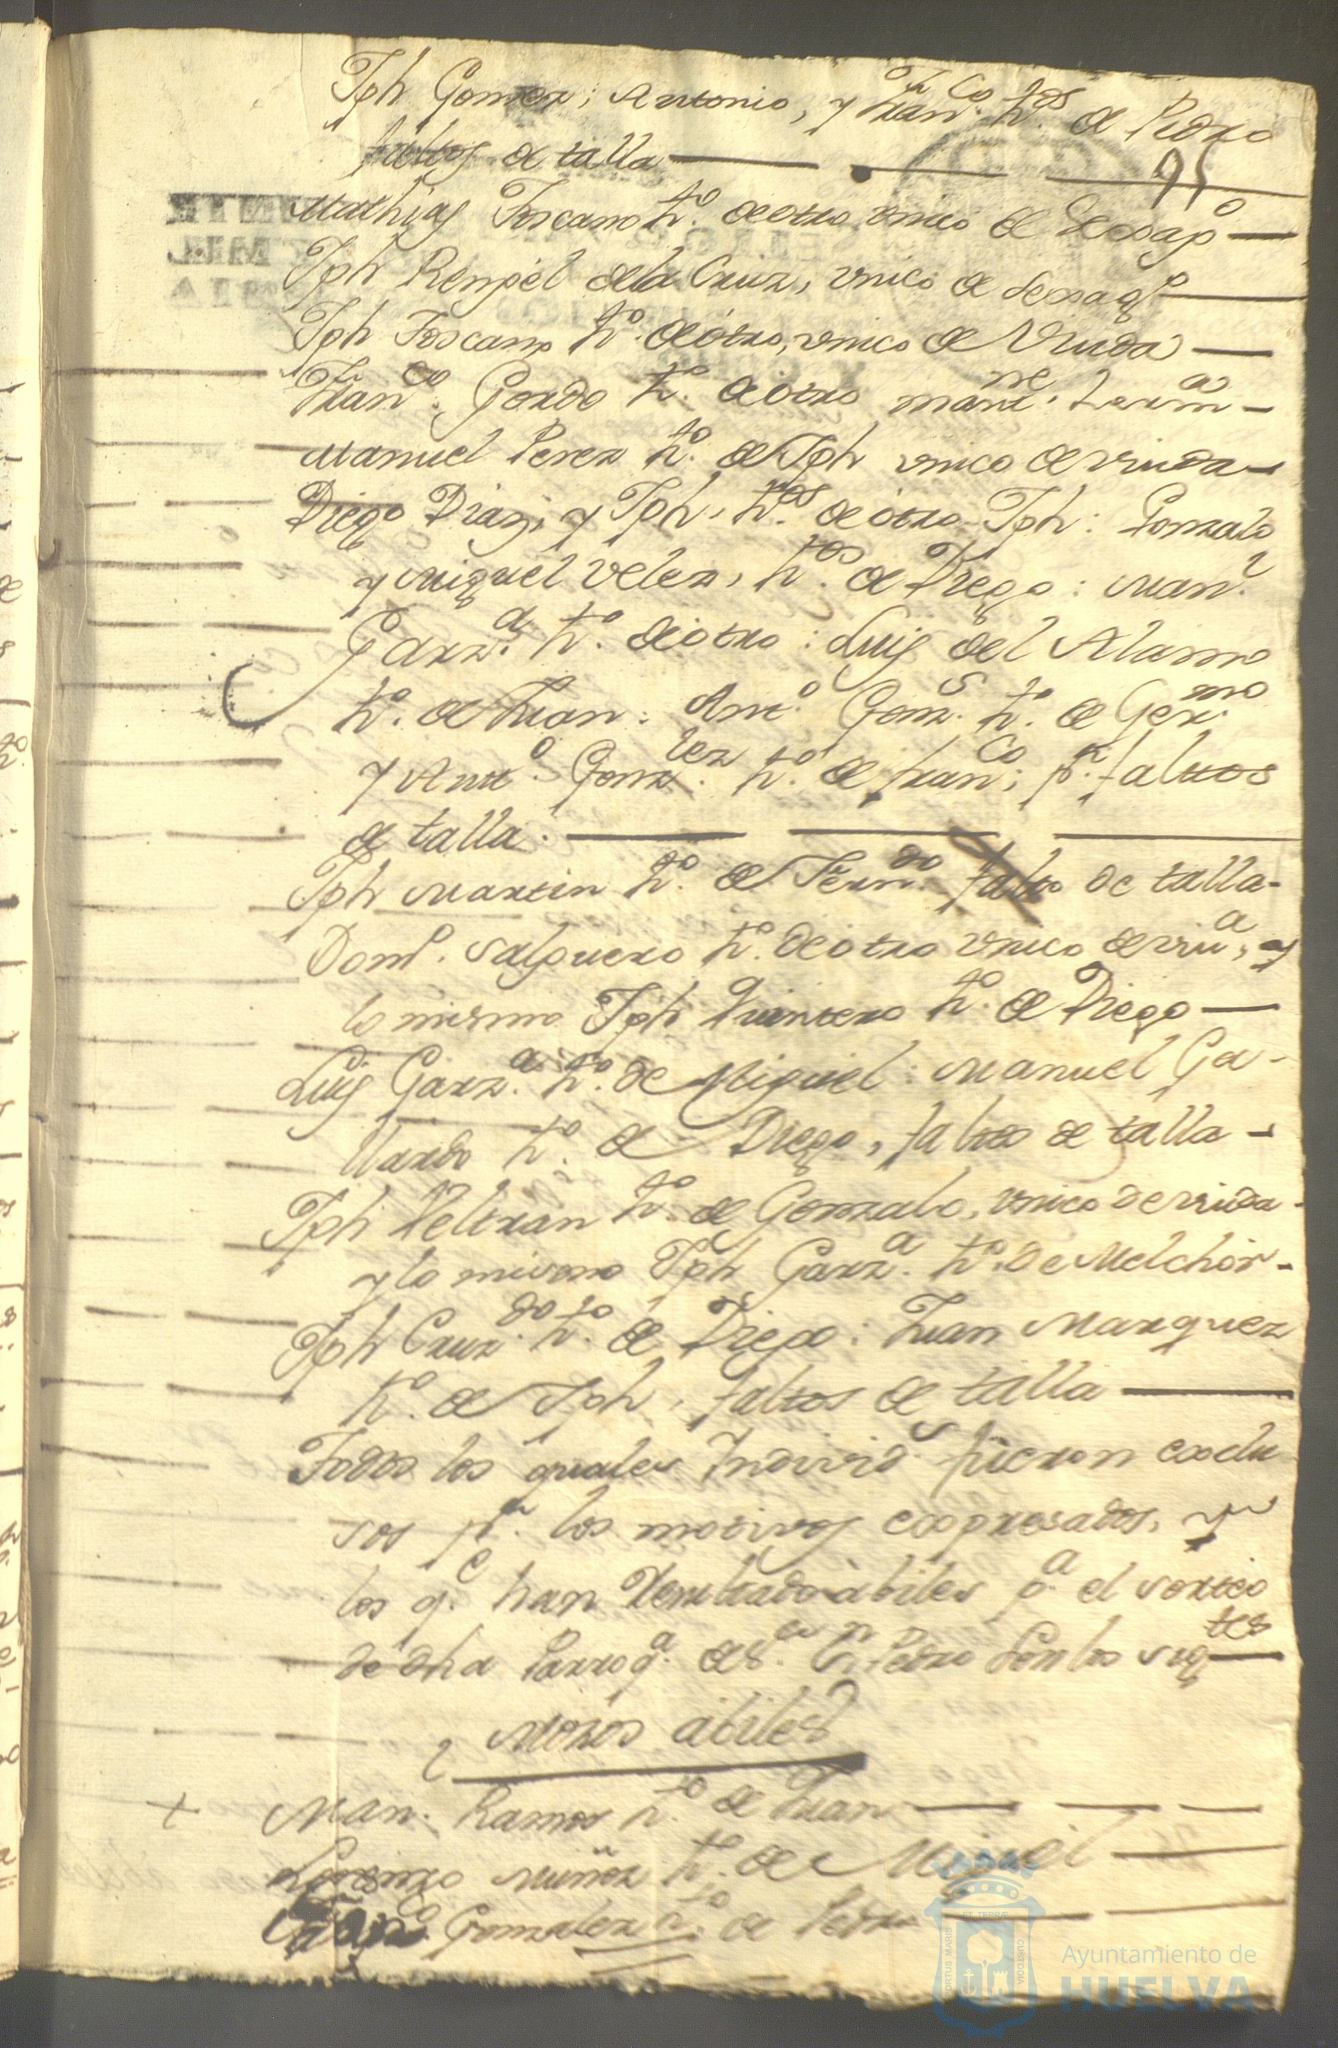 Jph Gomez; Antonio, y Fran.co h.os de Pedro
faltos de talla
95
Mathias Toscano h.o de otro, vnico de
Jph Renjel dela Cruz, vnico de
Jph Toscano h.o de otro, vnico de Viuda
Fran.co Gordo h.o de otro
Manuel Perez h.o de Jph vnico de viuda
Diego Diaz, y Jph, h.os de otro Jph: Gonzalo
y Miguel Velez, h.os de Diego: Man.l
Garz.a h.o de otro: Luis del Alamo
h.o de Juan: Ant.o Gonz.s h.o de Ger.mo
y Ant.o Gonz.lez h.o de fran.co; p.r faltos
de talla.
Jph Martin h.o de Fern.do falto de talla
Dom.o Salguero h.o de otro vnico de viu.a, y
lo mismo Jph Quintero h.o de Diego
Luis Garz.a h.o de Miguel: Manuel Ga-
llardo h.o de Diego, faltos de talla
Jph Veltran h.o de Gonzalo, vnico de viuda
y lo mismo Jph Garz.a h.o de Melchor
Jph Cruz.do h.o de Diego: Juan Marquez
h.o de Jph, faltos de talla
Todos los quales Individ.s fueron exclu
sos p.r los motivos expresados, y
los q.e han Resultado àbiles p.a el sorteo
de dha Parroq.a de S.n Pedro son los sig.tes
Mozos abiles
+ Man.l Ramos h.o de Juan
Lorenzo Muñoz h.o de Miguel
Fran.co Gonzalez h.o de Pedro
PORTUS MARIS ET TERRÆ CUSTODIA
Ayuntamiento de
HUELVA